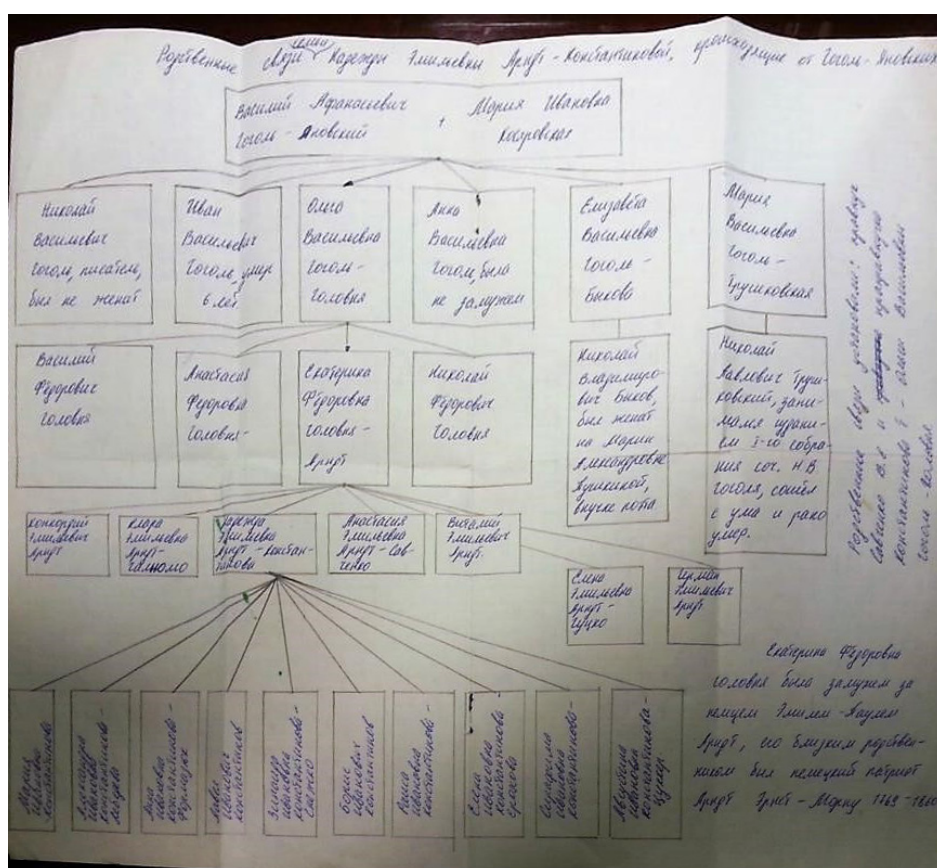 Родственные связи семьи Надежды Эмильевны Арндт-Константиновой, происходящие от Гоголь-Яновских
Василий Афанасьевич
Гоголь-Яновский
+
Мария Ивановна
Косяровская
Николай
Васильевич
Гоголь, писатель,
был не женат
Иван
Васильевич
Гоголь, умер
6 лет
Ольга
Васильевна
Гоголь-
Головня
Анна
Васильевна
Гоголь, была
не замужем
Елизавета
Васильевна
Гоголь-
Быкова
Мария
Васильевна
Гоголь-
Трушковская
Василий
Фёдорович
Головня
Анастасия
Федоровна
Головня-
Екатерина
Фёдоровна
Головня-
Арндт
Николай
Фёдорович
Головня
Николай
Владимиро-
вич Быков,
был женат
на Марии
Александровне
Пушкиной,
внучке поэта
Николай
Павлович Труш-
ковский, зани-
мался издани-
ем I-го собра-
ния соч. Н.В
Гоголя, сошёл
с ума и рано
умер.
Конкордий
Эмильевич
Арндт
Клара
Эмильевна
Арндт-
Надежда
Эмильевна
Арндт-Констан-
тинова
Анастасия
Эмильевна
Арндт-Сав-
ченко
Виталий
Эмильевич
Арндт.
Елена
Эмильевна
Арндт-
Гуцко
Герман
Эмильевич
Арндт
Мария
Ивановна
Константинова
Александра
Ивановна
Константинова-
Анна
Ивановна
Константинова-
Павел
Иванович
Константинов
Зинаида
Ивановна
Константинова-
Снежко
Борис
Иванович
Константинов
Раиса
Ивановна
Константинова-
Елена
Ивановна
Константинова
Екатерина
Ивановна
Константинова-
Августина
Ивановна
Константинова-
Родственные связи установили: правнук
Савченко В.В и праправнучка
Константинова Е - Ольги Васильевны
Гоголь-Головня
Екатерина Фёдоровна
Головня была замужем за
немцем Эмилем-Паулем
Арндт, его близким родствен-
ником был немецкий патриот
Арндт Эрнст-Мориц 1769-1860